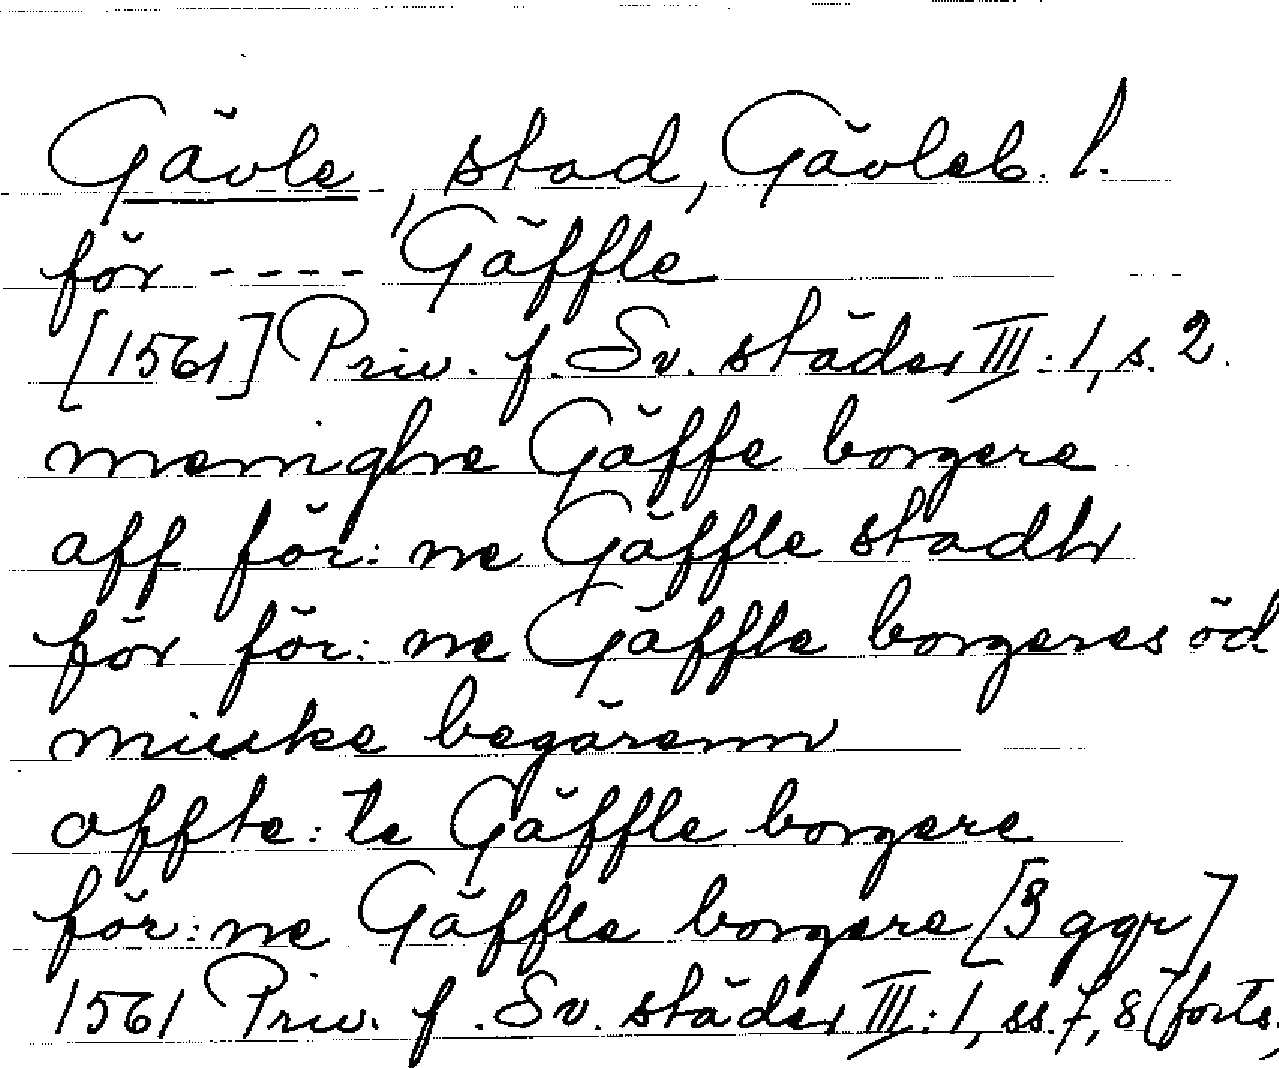 Gävle, stad, Gävleb. l.
för ---- Gäffle
[1561] Priv. f. Sv. städer III: 1, s. 2.
menighe Gäffe borgere
aff för:ne Gäffle stadh
för för:ne Gäffle borgeres öd
miuke begärenn
offte:te Gäffle borgere
för:ne Gäffle borgere [3 ggr]
1561 Priv. f. Sv. städer III: 1, ss. 7, 8 (forts.